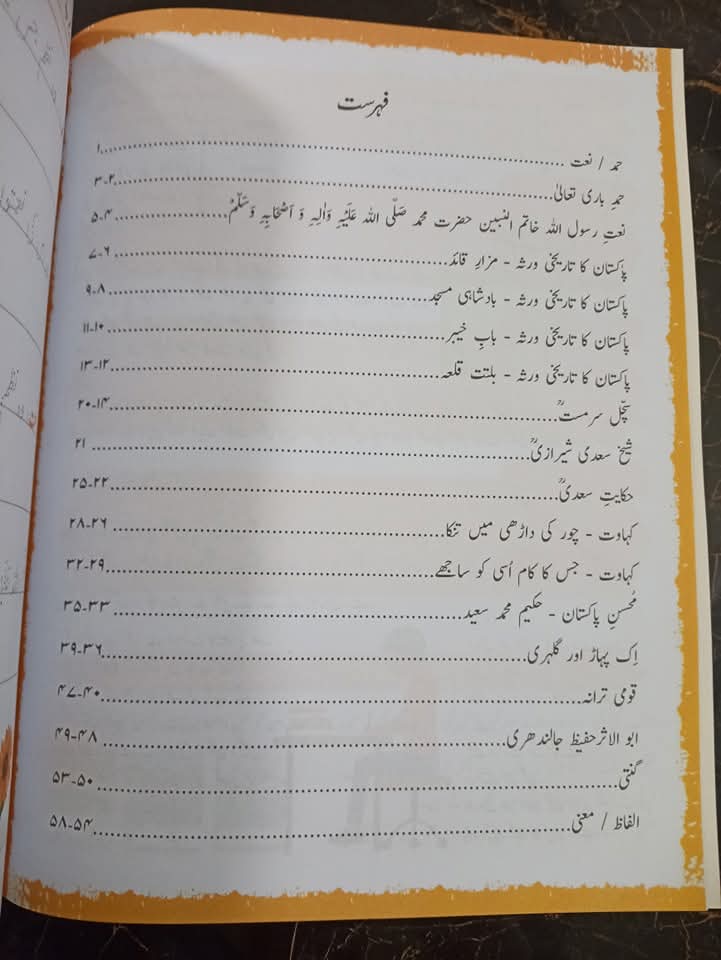 فہرست
حمد / نعت ............۱
حمدِ باری تعالیٰ............۳-۲
نعتِ رسول اللہ خاتم النبیین حضرت محمد صَلَّی اللہ عَلَیْہِ وَاٰلِہٖ وَ اَصْحَابِہٖ وَسَلَّمْ............۵-۴
پاکستان کا تاریخی ورثہ - مزارِ قائد............۷-۶
پاکستان کا تاریخی ورثہ - بادشاہی مسجد............۹-۸
پاکستان کا تاریخی ورثہ - بابِ خیبر............۱۱-۱۰
پاکستان کا تاریخی ورثہ - بلتت قلعہ............۱۳-۱۲
سچّل سرمستؒ............۲۰-۱۴
شیخ سعدی شیرازیؒ............۲۱
حکایتِ سعدیؒ............۲۵-۲۲
کہاوت - چور کی داڑھی میں تنکا............۲۸-۲۶
کہاوت - جس کا کام اُسی کو ساجھے............۳۲-۲۹
مُحسنِ پاکستان - حکیم محمد سعید............۳۵-۳۳
اِک پہاڑ اور گلہری............۳۹-۳۶
قومی ترانہ............۴۷-۴۰
ابو الاثرحفیظ جالندھری............۴۹-۴۸
گنتی............۵۳-۵۰
الفاظ / معنی............۵۸-۵۴